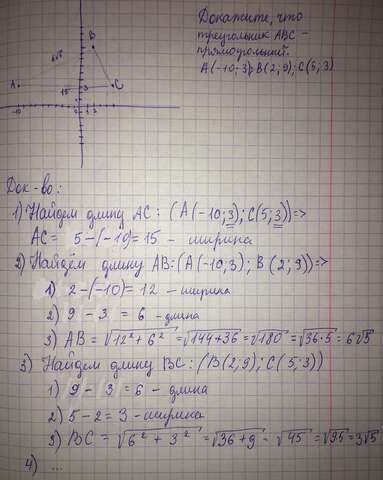 Докажите, что
треугольник ABC -
прямоугольный.
A(-10; 3); B(2; 9); C(5; 3)
B
6√5
A
C
15
3
-10
2
Док-во:
1) Найдем длину AC: (A(-10; 3); C(5; 3)) =>
AC = 5-(-10) = 15 - ширина
2) Найдём длину AB: (A(-10; 3); B(2; 9)) =>
1) 2-(-10) = 12 - ширина
2) 9 - 3 = 6 - длина
3) AB = √12² + 6² = √144+36 = √180 = √36·5 = 6√5
3) Найдем длину BC: (B(2; 9); C(5; 3))
1) 9 - 3 = 6 - длина
2) 5 - 2 = 3 - ширина
3) BC = √6² + 3² = √36+9 = √45 = √95 = 3√5
4) ...